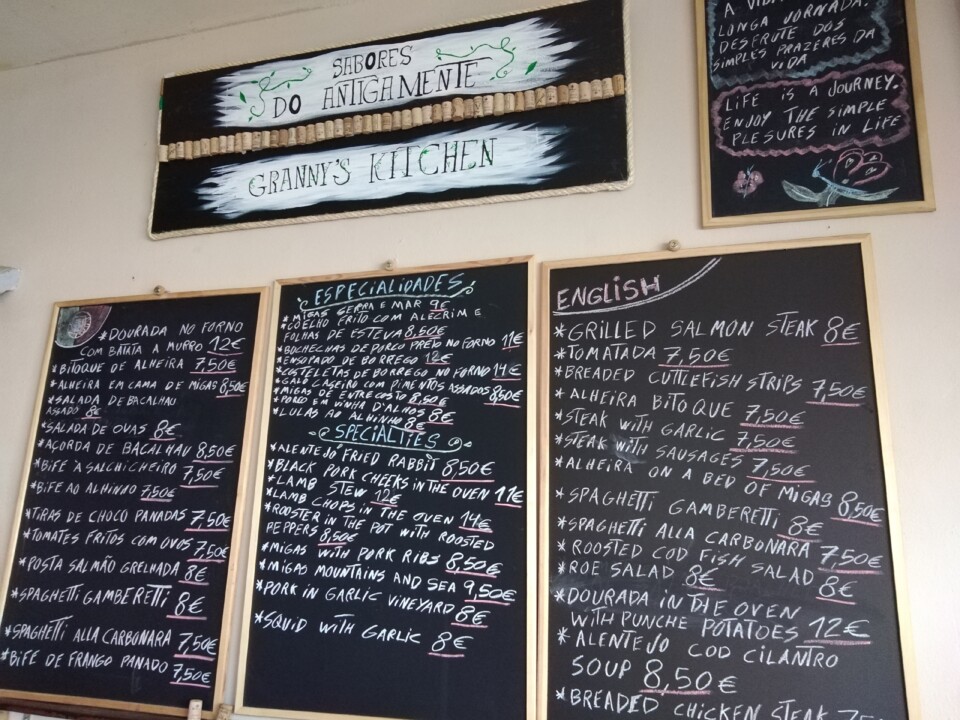 SABORES
DO ANTIGAMENTE
GRANNY'S KITCHEN
A VIDA
LONGA JORNADA.
DESFRUTE DOS
SIMPLES PRAZERES DA
VIDA
LIFE IS A JOURNEY.
ENJOY THE SIMPLE
PLESURES IN LIFE
*DOURADA NO FORNO
COM BATATA A MURRO 12€
*BITOQUE DE ALHEIRA 7,50€
*ALHEIRA EM CAMA DE MIGAS 8,50€
*SALADA DE BACALHAU
ASSADO 8€
*SALADA DE OVAS 8€
*AÇORDA DE BACALHAU 8,50€
*BIFE À SALCHICHEIRO 7,50€
*BIFE AO ALHINHO 7,50€
*TIRAS DE CHOCO PANADAS 7,50€
*TOMATES FRITOS COM OVOS 7,50€
*POSTA SALMÃO GRELHADA 8€
*SPAGHETTI GAMBERETTI 8€
*SPAGHETTI ALLA CARBONARA 7,50€
*BIFE DE FRANGO PANADO 7,50€
ESPECIALIDADES
*MIGAS SERRA E MAR 9€
*COELHO FRITO COM ALECRIM E
FOLHAS DE ESTEVA 8,50€
*BOCHECHAS DE PORCO PRETO NO FORNO 11€
*ENSOPADO DE BORREGO 12€
*COSTELETAS DE BORREGO NO FORNO 14€
*GALO CASEIRO COM PIMENTOS ASSADOS 8,50€
*MIGAS DE ENTRECOSTO 8,50€
*PORCO EM VINHA D'ALHOS 8€
*LULAS AO ALHINHO 8€
SPECIALTIES
*ALENTEJO FRIED RABBIT 8,50€
*BLACK PORK CHEEKS IN THE OVEN 11€
*LAMB STEW 12€
*LAMB CHOPS IN THE OVEN 14€
*ROOSTER IN THE POT WITH ROOSTED
PEPPERS 8,50€
*MIGAS WITH PORK RIBS 8,50€
*MIGAS MOUNTAINS AND SEA 9,50€
*PORK IN GARLIC VINEYARD 8€
*SQUID WITH GARLIC 8€
ENGLISH
*GRILLED SALMON STEAK 8€
*TOMATADA 7,50€
*BREADED CUTTLEFISH STRIPS 7,50€
*ALHEIRA BITOQUE 7,50€
*STEAK WITH GARLIC 7,50€
*STEAK WITH SAUSAGES 7,50€
*ALHEIRA ON A BED OF MIGAS 8,50€
*SPAGHETTI GAMBERETTI 8€
*SPAGHETTI ALLA CARBONARA 7,50€
*ROOSTED COD FISH SALAD 8€
*ROE SALAD 8€
*DOURADA IN THE OVEN
WITH PUNCHE POTATOES 12€
*ALENTEJO COD CILANTRO
SOUP 8,50€
*BREADED CHICKEN STEAK